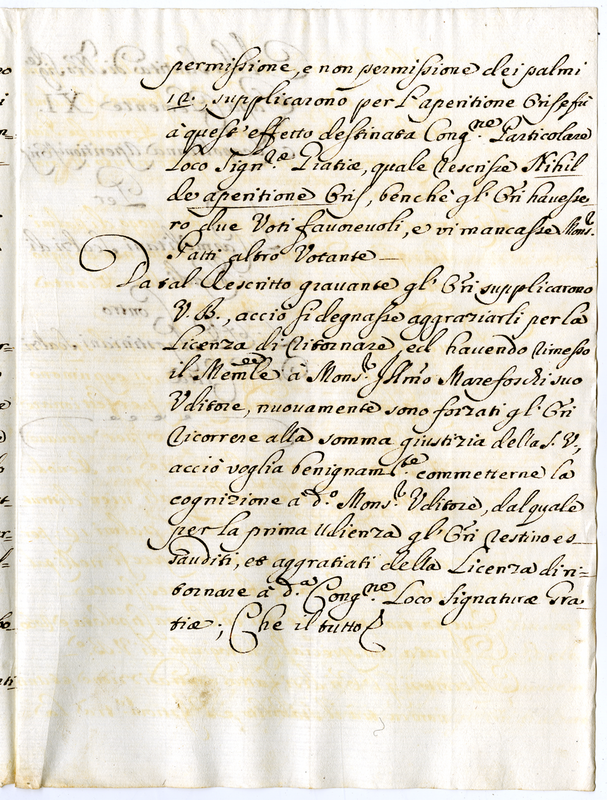 permissione, e non permissione dei palmi
12., supplicarono per l'aperitione Oris, e fù
à quest'effetto destinata Cong.ne Particolare
Loco Sign.ræ Gratiæ, quale rescrisse Nihil
de aperitione Oris, benchè gl'Ori havesse=
ro due Voti favorevoli, e vi mancasse Mons.r
Fatti altro Votante —
Da tal Rescritto gravante gl'Ori supplicarono
V. B., acciò si degnasse aggraziarli per la
Licenza di ritornare, ed havendo rimesso
il Mem.le à Mons.r Ill.mo Marefoschi suo
Uditore, nuovamente sono forzati gl'Ori
ricorrere alla somma giustizia della S. V.,
acciò voglia benignam.te commetterne la
cognizione à d.o Mons.r Uditore, dal quale
per la prima Udienza gl'Ori restino es=
sauditi, et aggratiati della Licenza di ri=
tornare à d.a Cong.ne Loco Signaturæ Gra=
tiæ; Che il tutto